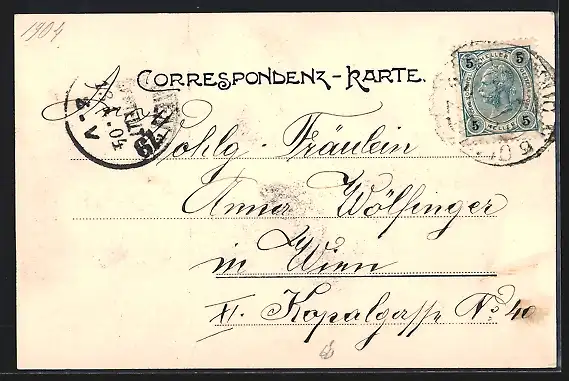 1904
CORRESPONDENZ-KARTE.
5 HELLER 5
5 HELLER 5
An
Wohlg. Fräulein
Anna Wölfinger
in Wien
XI. Kopalgasse No 40